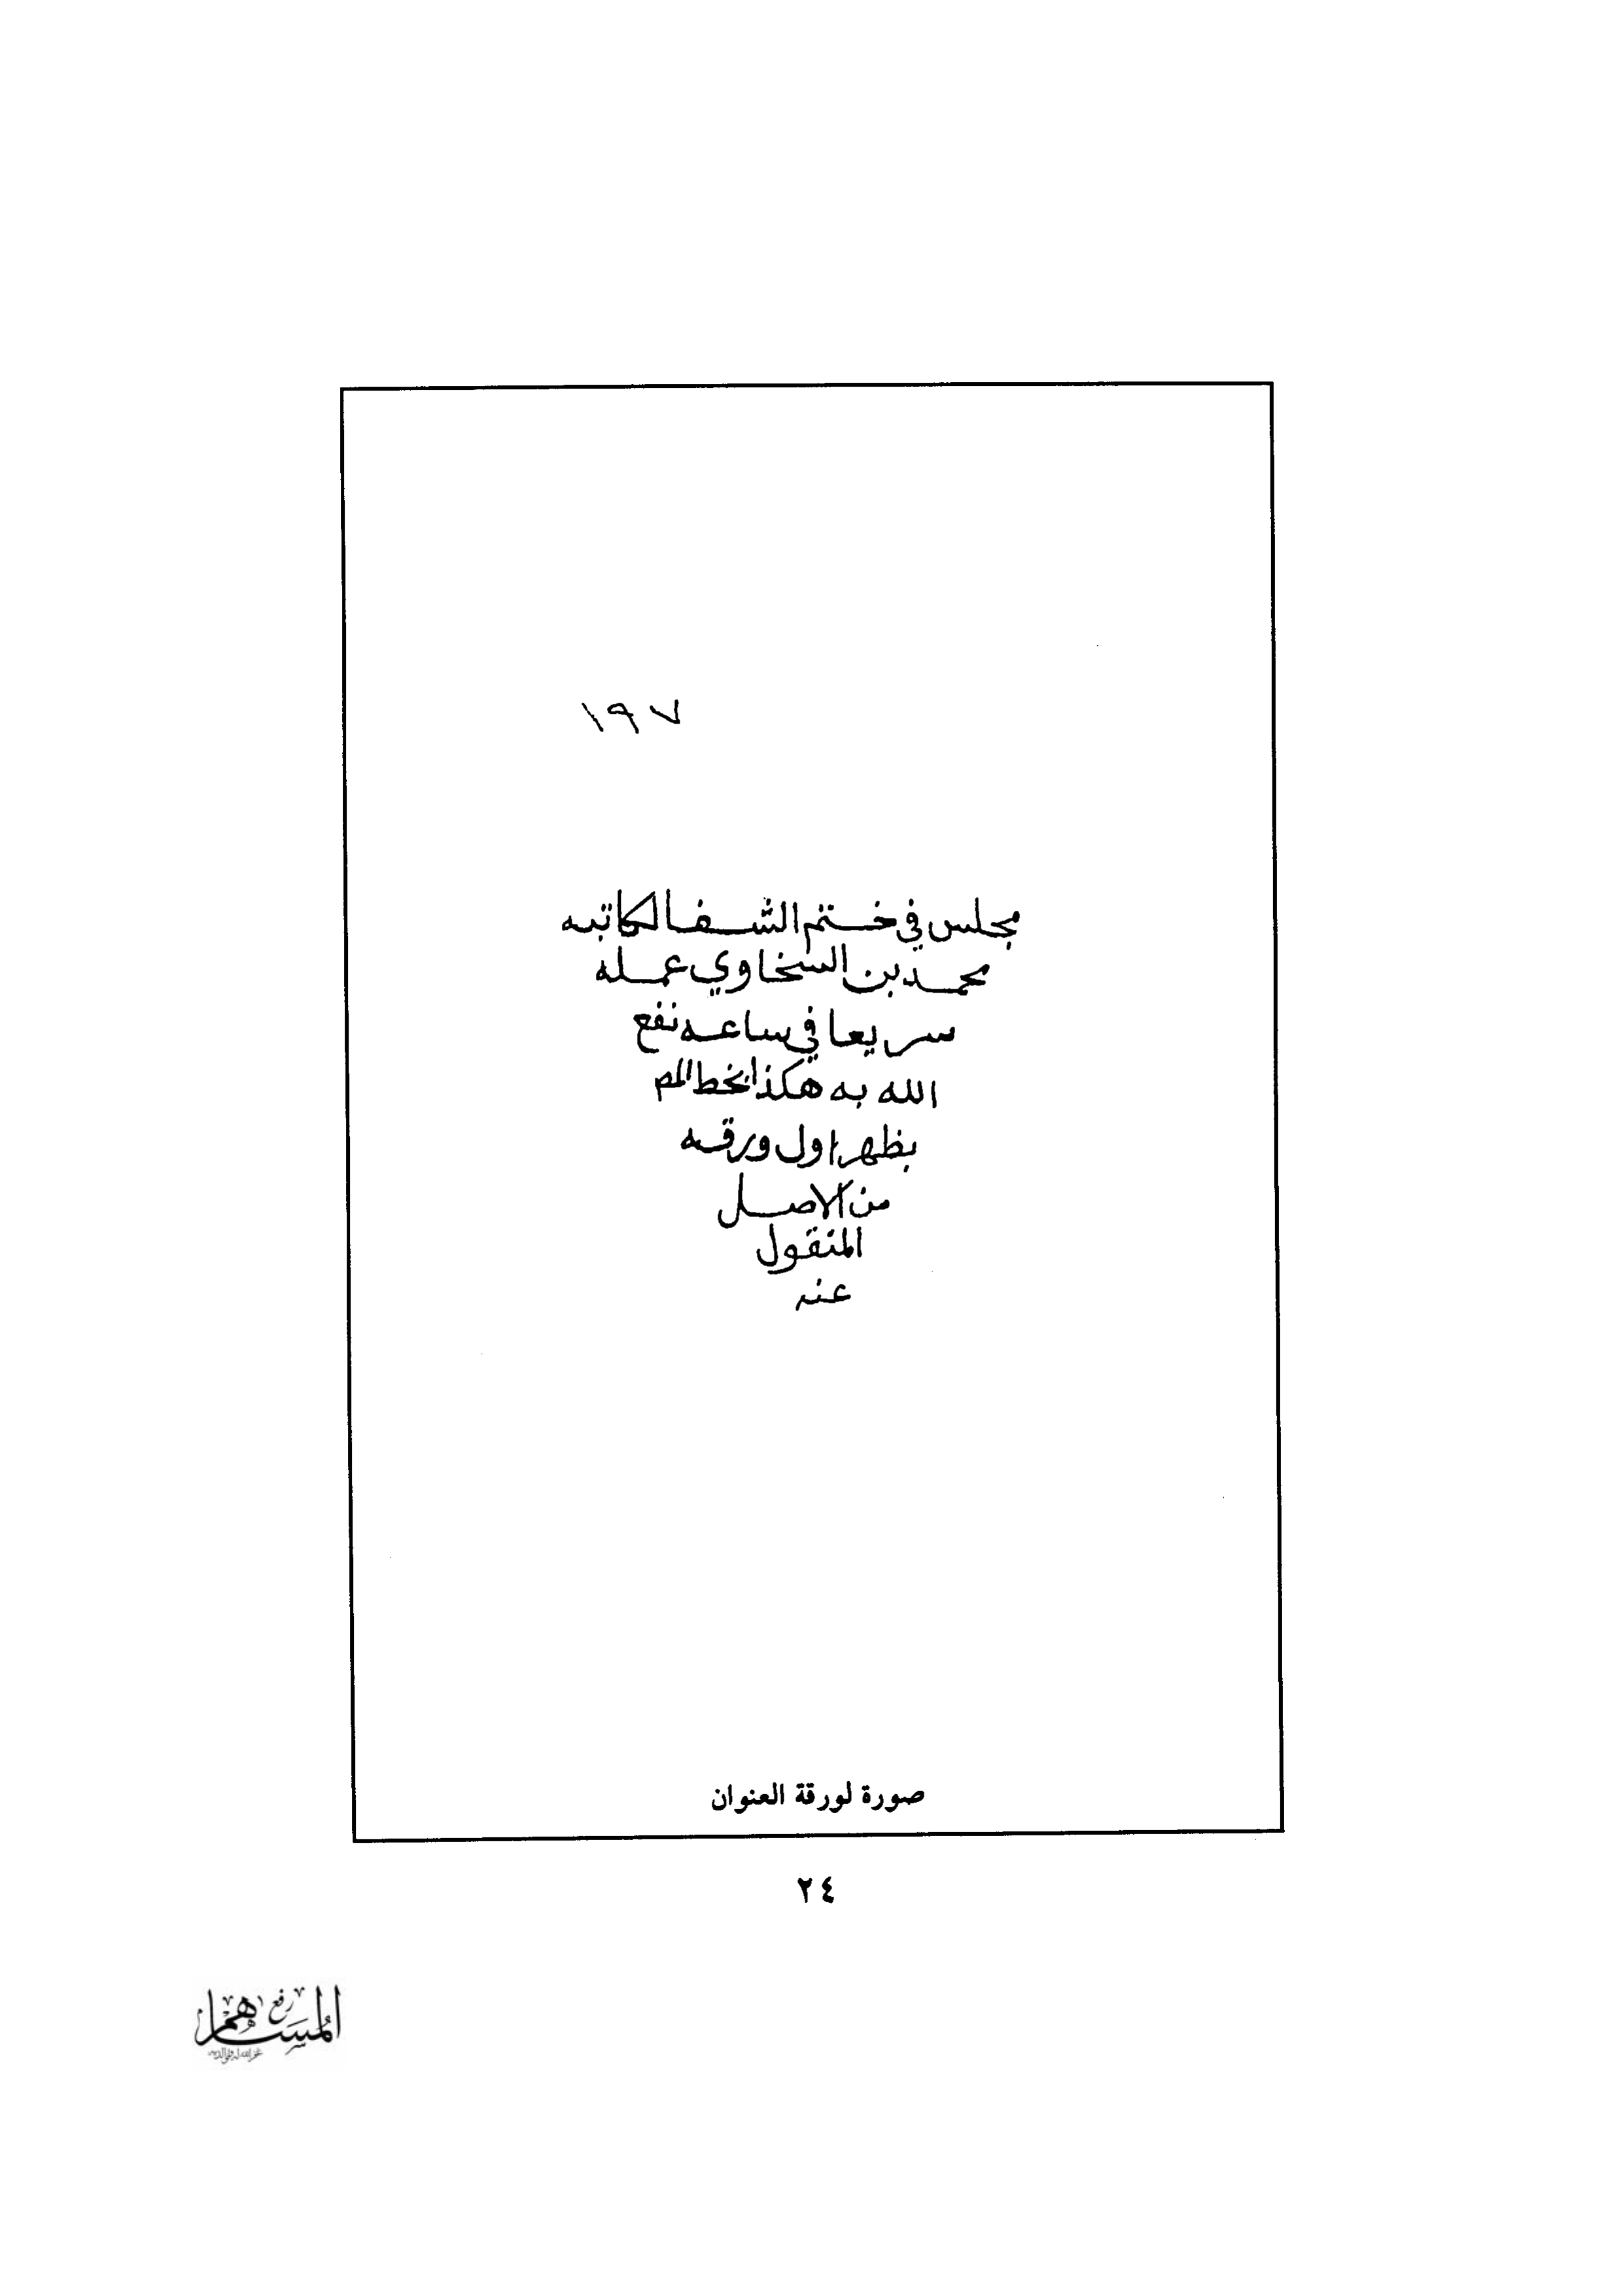 ١٩٧
مجلس في ختم الشفا لكاتبه
محمد بن السخاوي عمله
سريعا في ساعه نفع
الله به هكذا بخط المص
بظهر اول ورقه
من الاصل
المنقول
عنه
صورة لورقة العنوان
٢٤
رفع
المساهم
غفر الله له ولوالديه